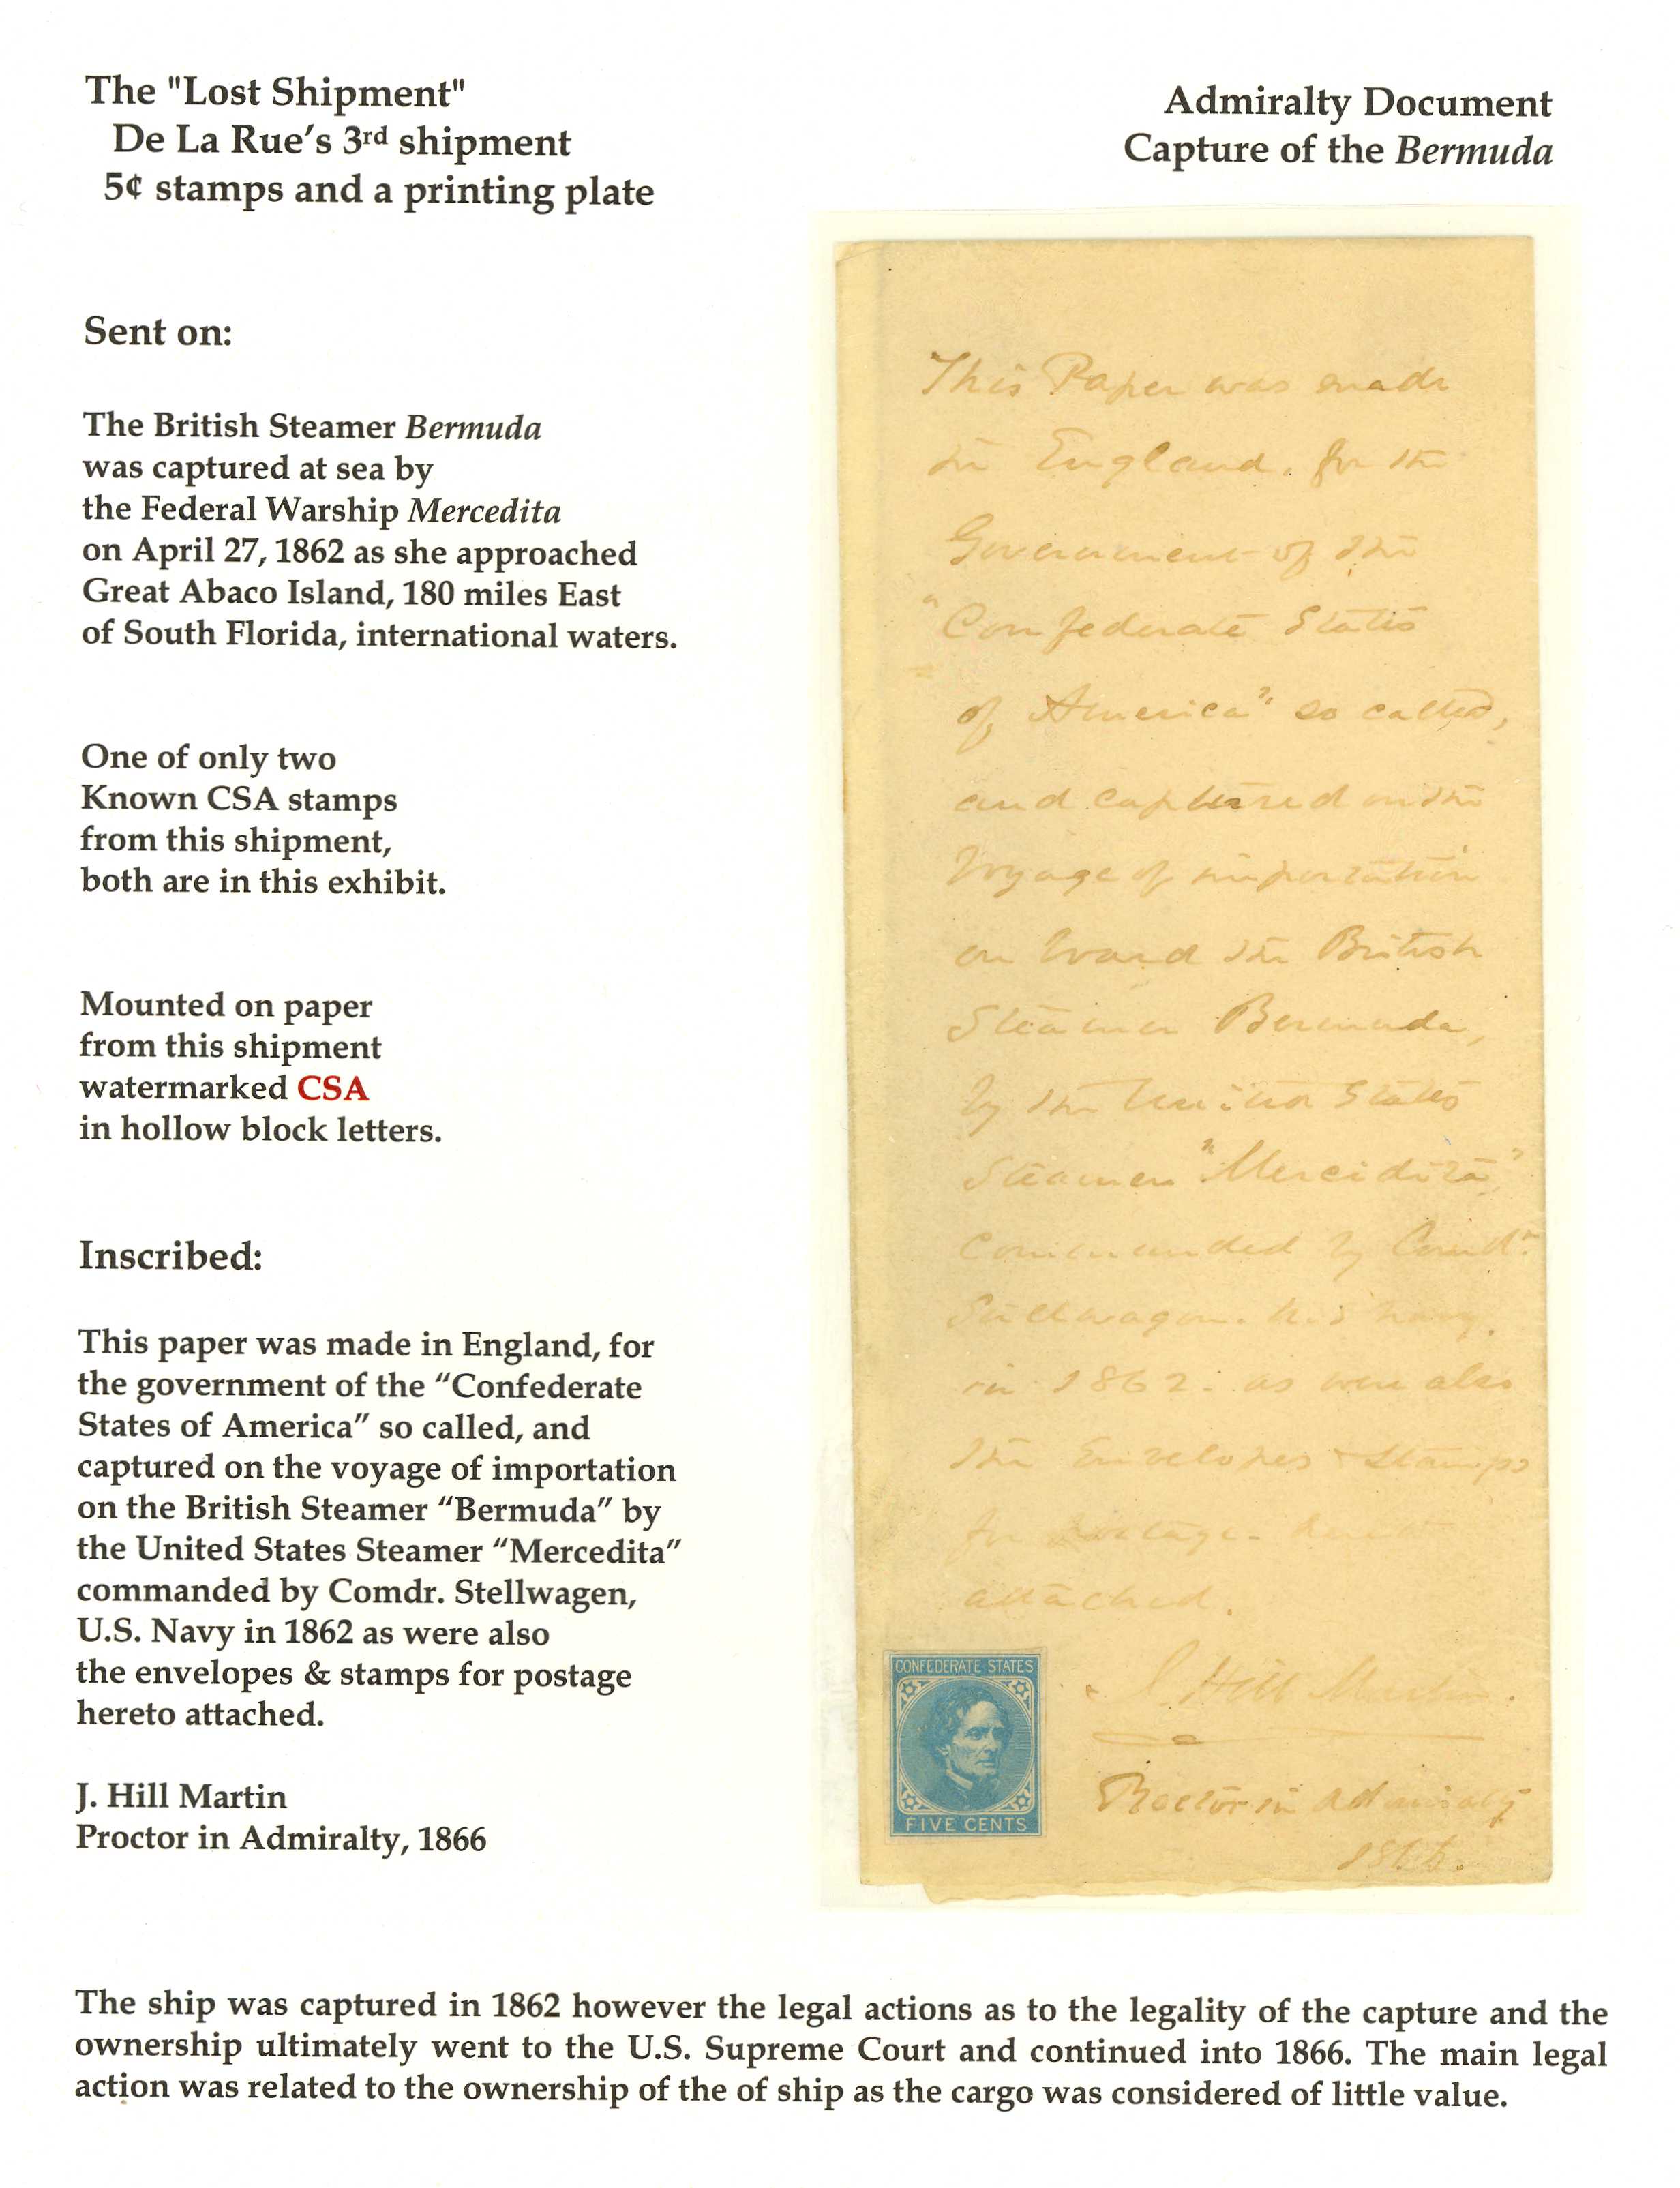 The "Lost Shipment"
De La Rue's 3rd shipment
5¢ stamps and a printing plate
Admiralty Document
Capture of the Bermuda
Sent on:
The British Steamer Bermuda
was captured at sea by
the Federal Warship Mercedita
on April 27, 1862 as she approached
Great Abaco Island, 180 miles East
of South Florida, international waters.
One of only two
Known CSA stamps
from this shipment,
both are in this exhibit.
Mounted on paper
from this shipment
watermarked CSA
in hollow block letters.
Inscribed:
This paper was made in England, for
the government of the "Confederate
States of America" so called, and
captured on the voyage of importation
on the British Steamer "Bermuda" by
the United States Steamer "Mercedita"
commanded by Comdr. Stellwagen,
U.S. Navy in 1862 as were also
the envelopes & stamps for postage
hereto attached.
J. Hill Martin
Proctor in Admiralty, 1866
This Paper was made
in England, for the
Government of the
"Confederate States
of America" so called,
and captured on the
Voyage of importation
on board the British
Steamer Bermuda,
by the United States
Steamer "Mercidita",
commanded by Comdr.
Stellwagen. U.S. Navy.
in 1862. as were also
the Envelopes & Stamps
for postage. hereto
attached.
J. Hill Martin.
Proctor in Admiralty
1866.
CONFEDERATE STATES
FIVE CENTS
The ship was captured in 1862 however the legal actions as to the legality of the capture and the
ownership ultimately went to the U.S. Supreme Court and continued into 1866. The main legal
action was related to the ownership of the of ship as the cargo was considered of little value.